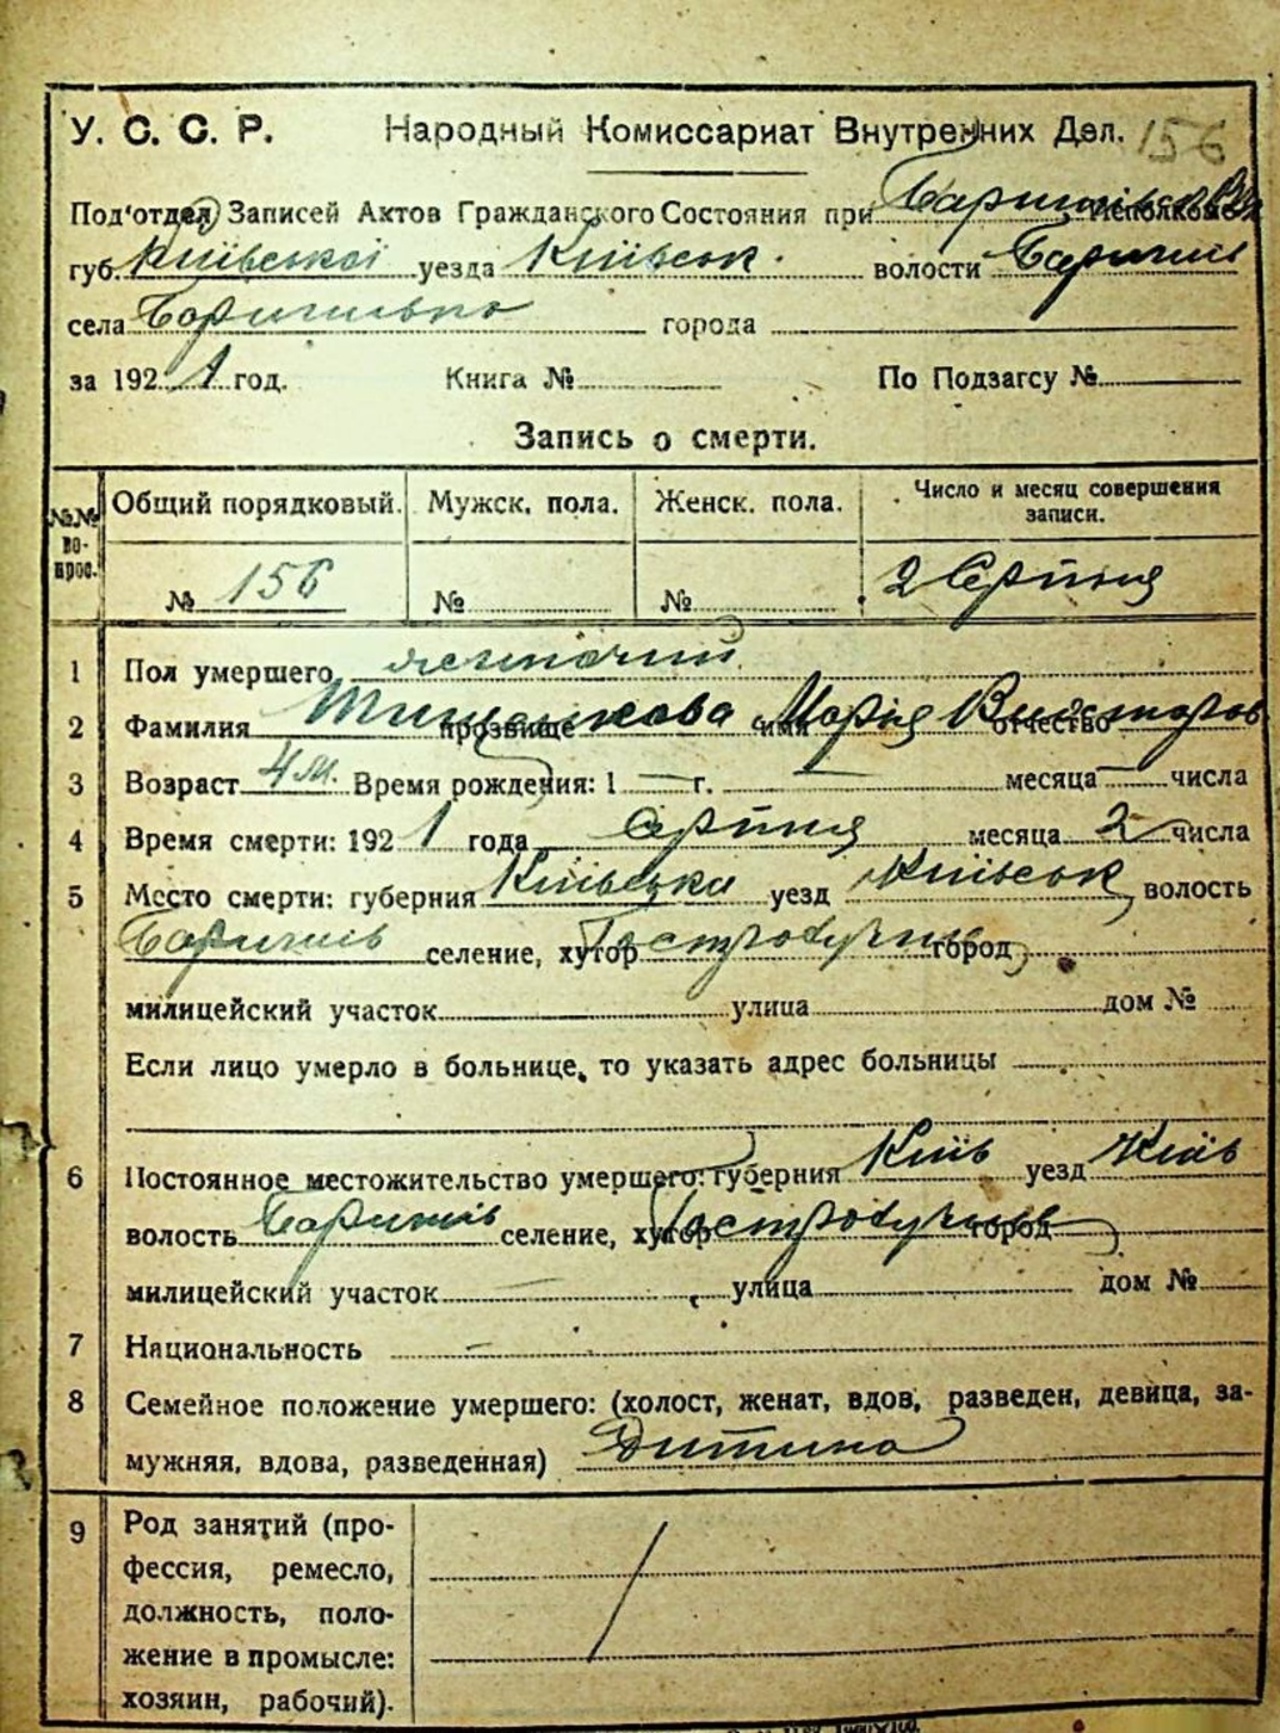 У. С. С. Р. Народный Комиссариат Внутренних Дел. 156
Под'отдел Записей Актов Гражданского Состояния при Исполкоме
губ. Київської уезда Київськ. волости Баришів
села Баришівка города
за 1921 год. Книга № По Подзагсу №
Запись о смерти.
№№ вопрос. Общий порядковый. Мужск. пола. Женск. пола. Число и месяц совершения записи.
№ 156 № № 2 Серпня
1 Пол умершего жіночий
2 Фамилия прозвище Марія имя отчество
3 Возраст 4 м. Время рождения: 1 — г. — месяца — числа
4 Время смерти: 1921 года Серпня месяца 2 числа
5 Место смерти: губерния Київська уезд Київськ волость
Баришів селение, хутор город
милицейский участок улица дом №
Если лицо умерло в больнице, то указать адрес больницы
6 Постоянное местожительство умершего: губерния Київ уезд Київ
волость Баришів селение, хутор город
милицейский участок улица дом №
7 Национальность –
8 Семейное положение умершего: (холост, женат, вдов, разведен, девица, за-
мужняя, вдова, разведенная) Дитина
9 Род занятий (про-
фессия, ремесло,
должность, поло-
жение в промысле:
хозяин, рабочий).